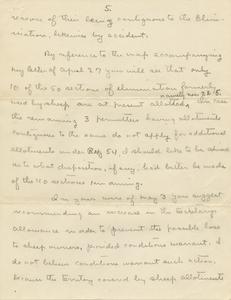 5.
reasons of their being contiguous to the Elimi-
nation, likewise by accident.
By reference to the map accompanying
my letter of April 27 you will see that only
10 of the 50 sections of elimination formerly
used by sheep, are at present allotted,
the remaining 3 permittees having allotments
contiguous to the same do not apply for additional
allotments under Reg 54 I should like to be advised
as to what disposition, if any, had better be made
of the 40 sections remaining.
In your wire of May 3 you suggest
recommending an increase in the
allowance in order to prevent the possible loss
to sheep owners, provided conditions warrant. I
do not believe conditions warrant such action,
because the territory covered by sheep allotments